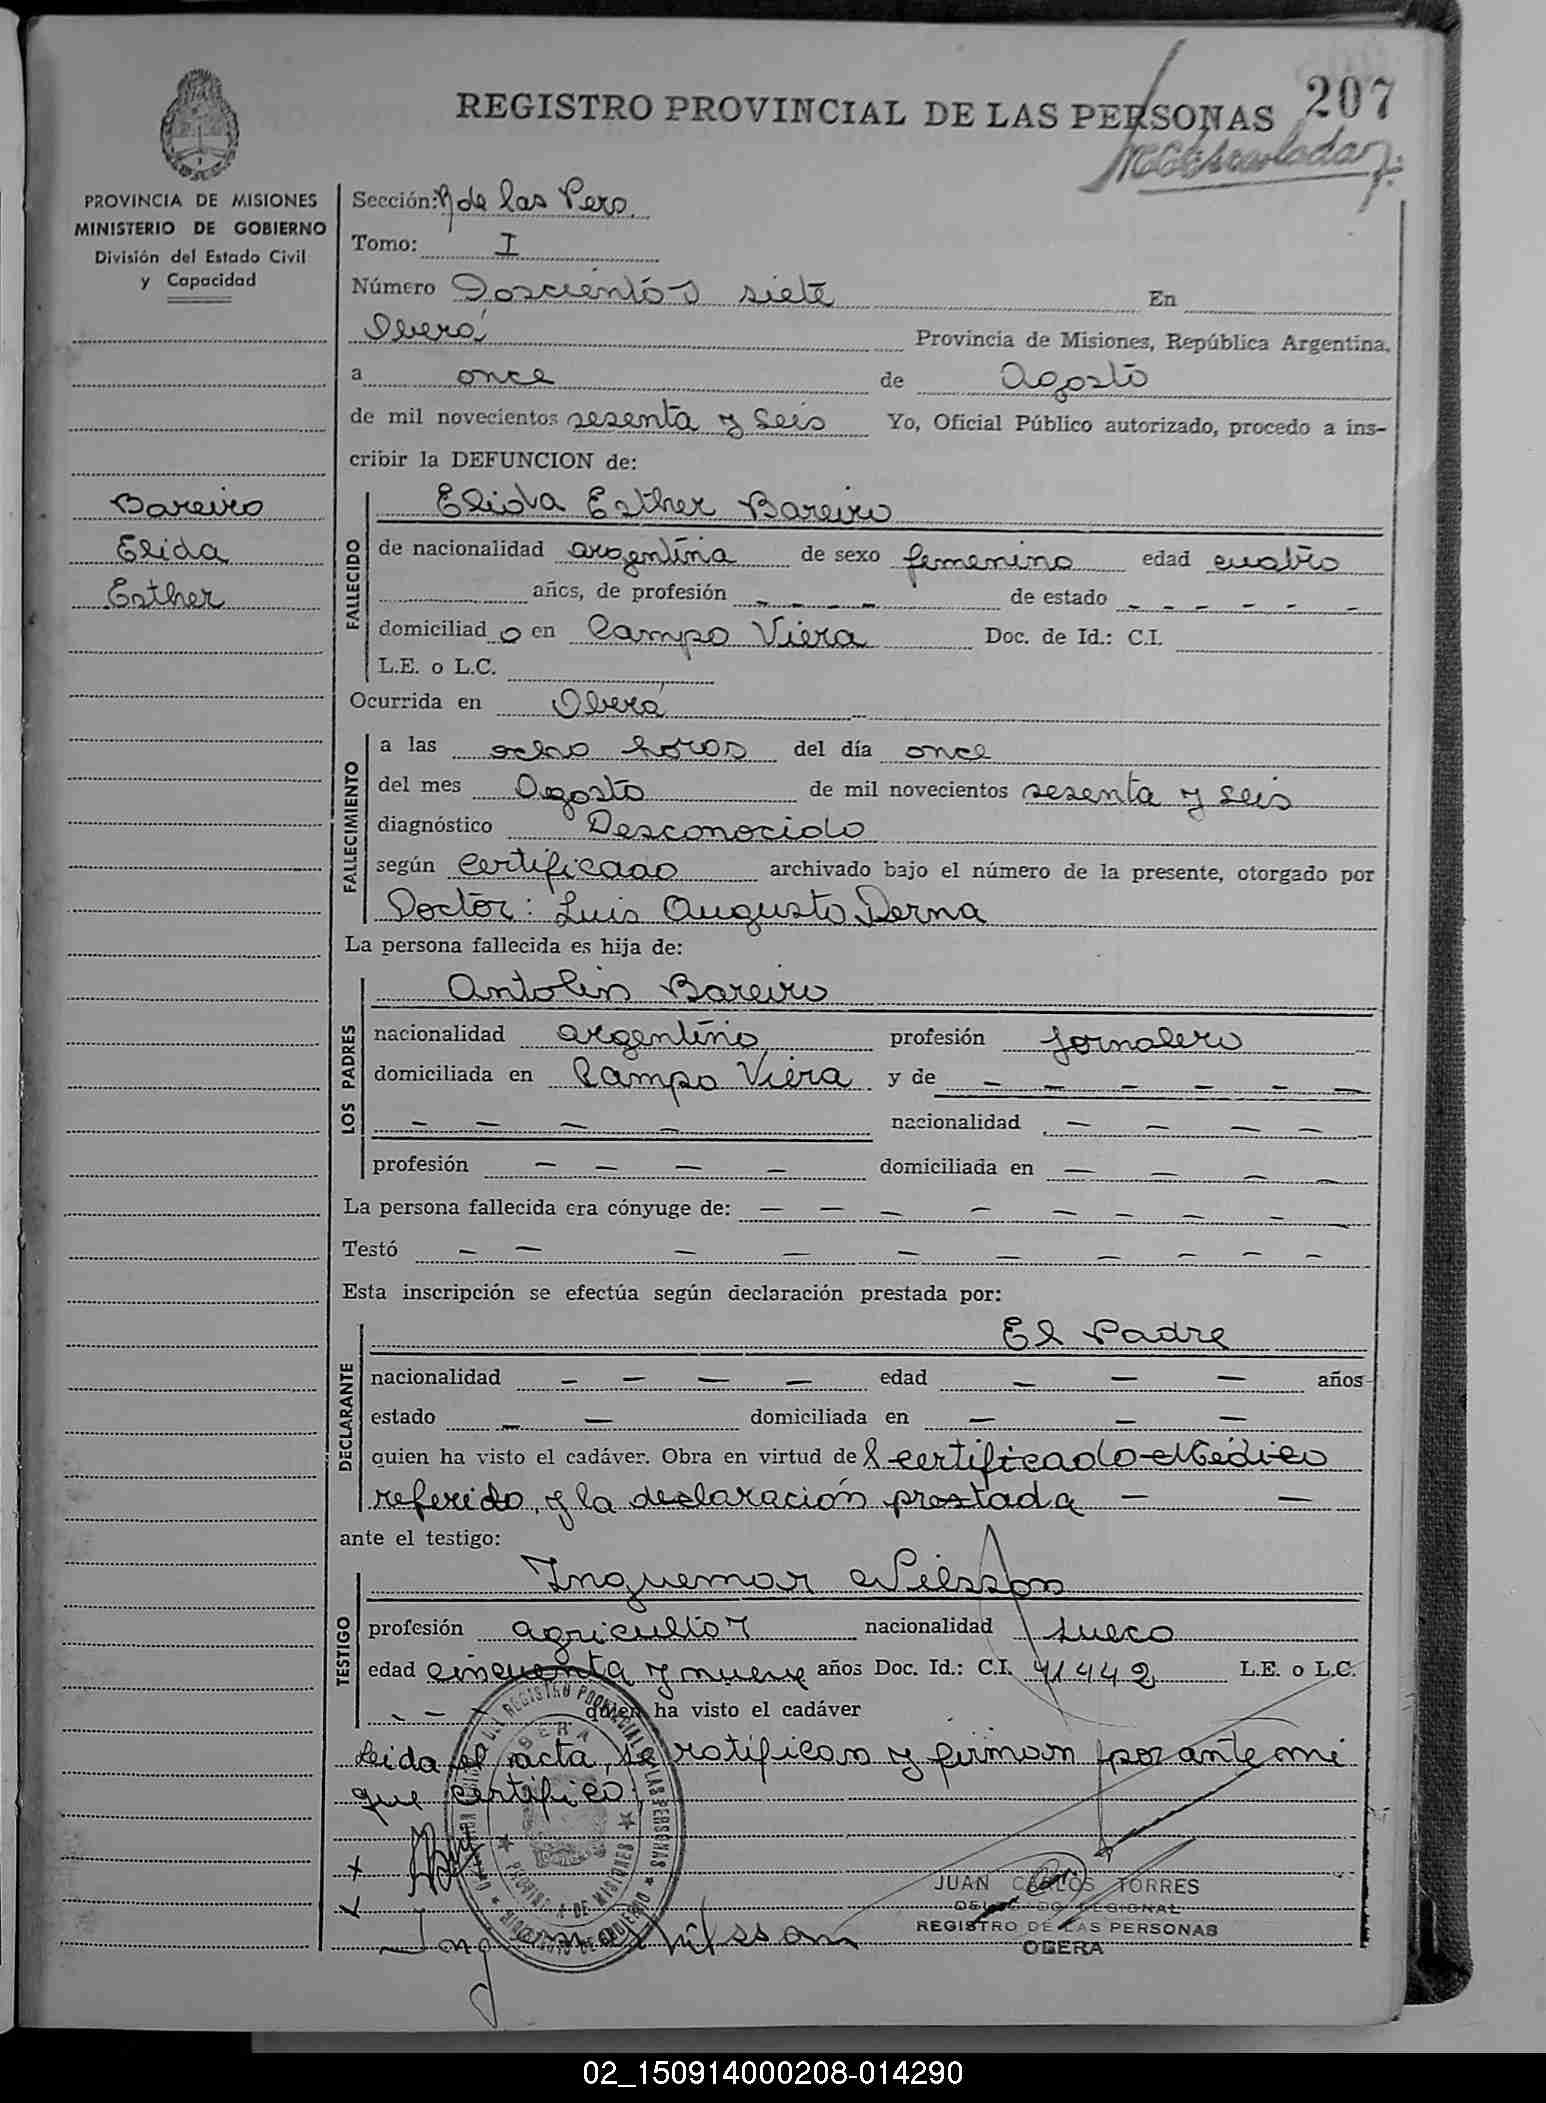 REGISTRO PROVINCIAL DE LAS PERSONAS
207
PROVINCIA DE MISIONES
MINISTERIO DE GOBIERNO
División del Estado Civil
y Capacidad
Bareiro
Elida
Esther
Sección: R de las Pers.
Tomo: I
Número Doscientos siete En
Oberá Provincia de Misiones, República Argentina,
a once de Agosto
de mil novecientos sesenta y seis Yo, Oficial Público autorizado, procedo a ins-
cribir la DEFUNCION de:
FALLECIDO
Elida Esther Bareiro
de nacionalidad argentina de sexo femenino edad cuatro
años, de profesión - - - - de estado - - - - - -
domiciliad o en Campo Viera Doc. de Id.: C.I.
L.E. o L.C.
Ocurrida en Oberá
FALLECIMIENTO
a las ocho horas del día once
del mes Agosto de mil novecientos sesenta y seis
diagnóstico Desconocido
según certificado archivado bajo el número de la presente, otorgado por
Doctor: Luis Augusto Derna
La persona fallecida es hija de:
LOS PADRES
Antolin Bareiro
nacionalidad argentino profesión jornalero
domiciliada en Campo Viera y de - - - - - -
- - - - nacionalidad - - - -
profesión - - - - domiciliada en - - - -
La persona fallecida era cónyuge de: - - - - - - - - -
Testó - - - - - - - - - -
Esta inscripción se efectúa según declaración prestada por:
DECLARANTE
El Padre
nacionalidad - - - - edad - - - años
estado - - domiciliada en - - -
quien ha visto el cadáver. Obra en virtud de l certificado Médico
referido, y la declaración prestada - -
ante el testigo:
TESTIGO
Inguemar Nilsson
profesión agricultor nacionalidad sueco
edad cincuenta y nueve años Doc. Id.: C.I. 41442 L.E. o L.C.
- - - quien ha visto el cadáver
Leida el acta, se ratifican y firman por ante mi
que certifico:
Ingemar Nilsson
JUAN CARLOS TORRES
DELEGADO REGIONAL
REGISTRO DE LAS PERSONAS
OBERA
02_150914000208-014290